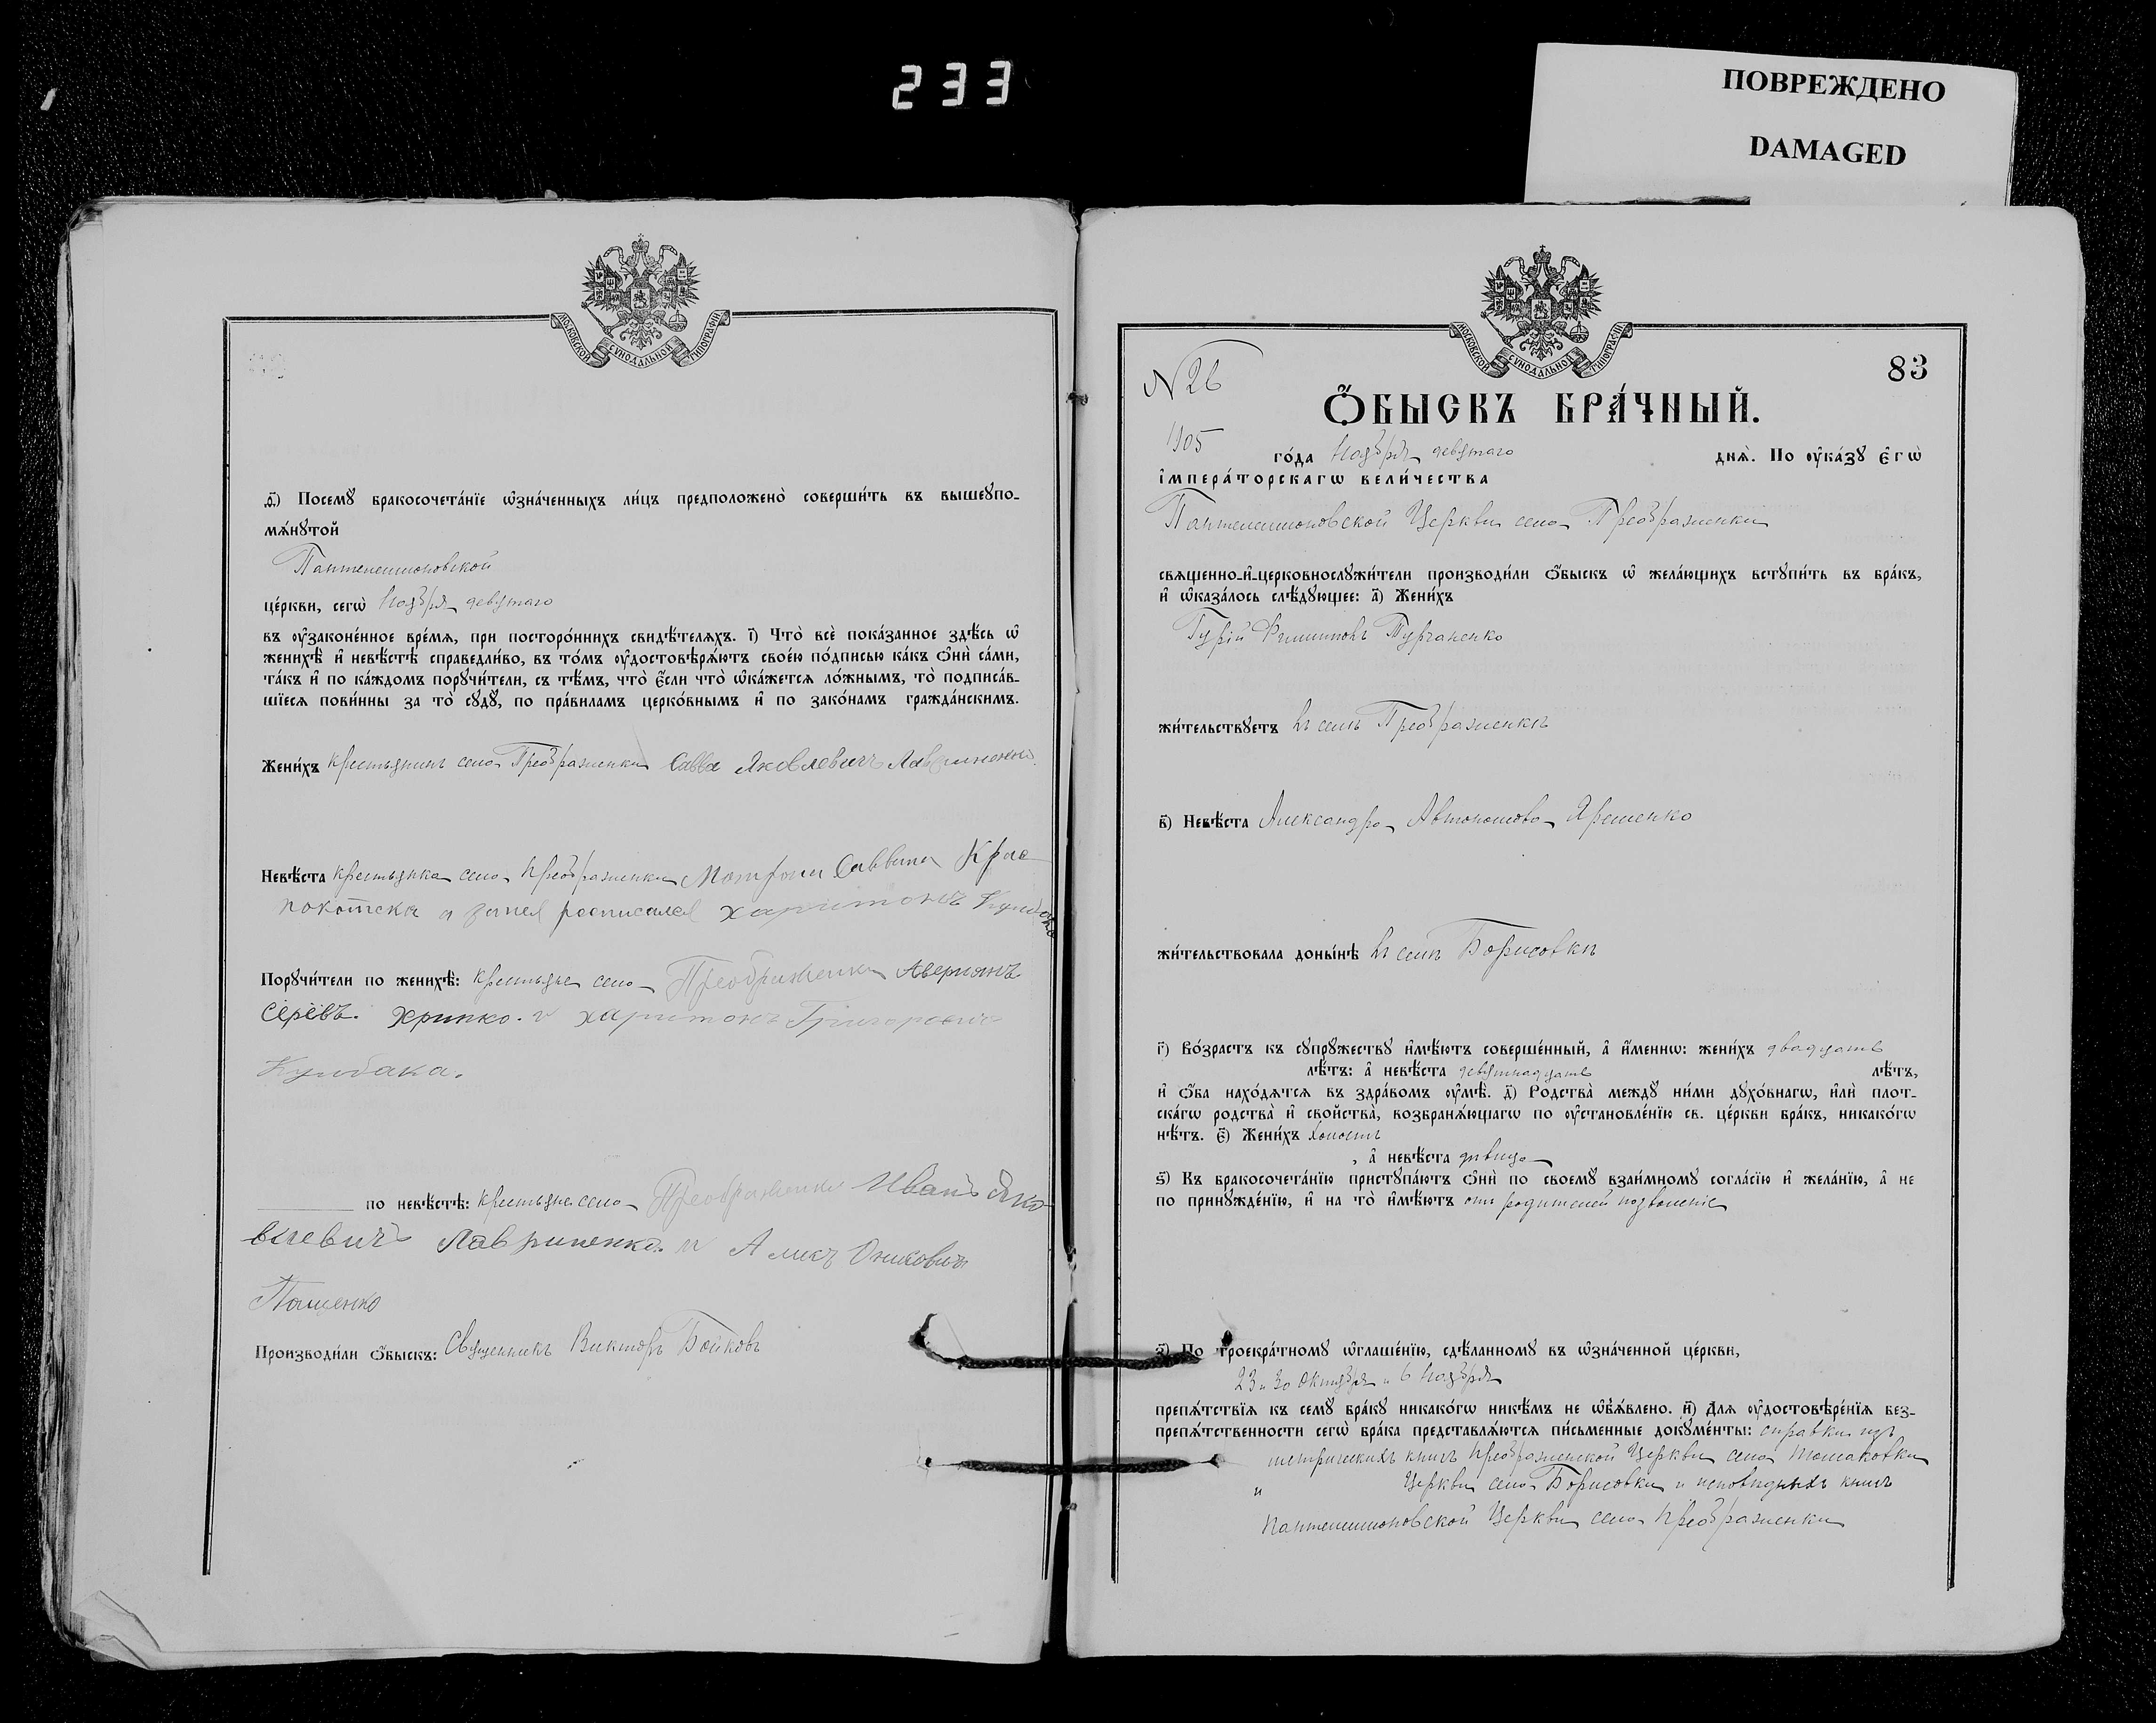 233
ПОВРЕЖДЕНО
DAMAGED
МОСКОВСКОЙ СѴНОДАЛЬНОЙ ТИПОГРАФІИ
ѳ҃) Посемꙋ̀ бракосочета́нїе ѡ҆зна́ченныхъ ли́цъ предположено̀ соверши́ть въ вышеꙋпо-
мѧ́нꙋтой
Пантелеимоновской
це́ркви, сегѡ̀ Ноября девятаго
въ ᲂу҆зако́ненное вре́мѧ, при посторо́ннихъ свидѣ́телѧхъ. і҃) Что̀ всѐ пока́занное здѣ́сь ѡ҆
женихѣ̀ и҆ невѣ́стѣ справедли́во, въ то́мъ ᲂу҆достовѣрѧ́ютъ свое́ю по́дписью ка́къ ѻ҆нѝ са́ми,
та́къ и҆ по ка́ждомъ порꙋчи́тели, съ тѣ́мъ, что̀ є҆́сли что̀ ѡ҆ка́жетсѧ ло́жнымъ, то̀ подписа́в-
шїесѧ пови́нны за то̀ сꙋдꙋ̀, по пра́виламъ церко́внымъ и҆ по зако́намъ гражда́нскимъ.
Жени́хъ крестьянинъ села Преображенки Савва Яковлевичъ Лавриненко
Невѣ́ста крестьянка села Преображенки Матрона Саввина Крас
нокотска а занея росписался Харитонъ Кулбака
Порꙋчи́тели по женихѣ̀: крестьяне села Преображенки Аверіянъ
Серевъ. Хрипко. и Харитонъ Григоровичъ
Кулбака.
по невѣ́стѣ: крестьяне села Преображенки Иванъ Яко
влевичъ Лавриненко. и
Пащенко
Производи́ли ѻ҆́быскъ: Священникъ Викторъ Бойковъ
МОСКОВСКОЙ СѴНОДАЛЬНОЙ ТИПОГРАФІИ
N 26
83
Ѻ҆́БЫСКЪ БРА́ЧНЫЙ.
1905 го́да Ноября девятаго днѧ̀. По ᲂу҆ка́зꙋ є҆гѡ̀
і҆мпера́торскагѡ вели́чества
Пантелеимоновской Церкви села Преображенки
свѧщенно-и҆-церковнослꙋжи́тели производи́ли ѻ҆́быскъ ѡ҆ жела́ющихъ встꙋпи́ть въ бра́къ,
и҆ ѡ҆каза́лось слѣ́дꙋющее: а҃) Жени́хъ
Гурій Филиповъ Турчаненко
жи́тельствꙋетъ въ селѣ Преображенкѣ
в҃) Невѣ́ста Александра Автономова Ярешенко
жи́тельствовала доны́нѣ въ селѣ Борисовкѣ
г҃) Во́зрастъ къ сꙋпрꙋ́жествꙋ и҆мѣ́ютъ соверше́нный, а҆ и҆́меннѡ: жени́хъ двадцать
лѣ́тъ: а҆ невѣ́ста девятнадцать лѣ́тъ,
и҆ ѻ҆́ба нахо́дѧтсѧ въ здра́вомъ ᲂу҆мѣ̀. д҃) Родства̀ междꙋ̀ ни́ми дꙋхо́внагѡ, и҆лѝ плот-
ска́гѡ родства̀ и҆ свойства̀, возбранѧ́ющагѡ по ᲂу҆становле́нїю св. це́ркви бра́къ, никако́гѡ
нѣ́тъ. є҃) Жени́хъ холостъ
, а҆ невѣ́ста дѣвица
ѕ҃) Къ бракосочета́нїю пристꙋпа́ютъ ѻ҆нѝ по своемꙋ̀ взаи́мномꙋ согла́сїю и҆ жела́нїю, а҆ не
по принꙋжде́нїю, и҆ на то̀ и҆мѣ́ютъ отъ родителей позволеніе
з҃) По троекра́тномꙋ ѡ҆глаше́нїю, сдѣ́ланномꙋ въ ѡ҆зна́ченной це́ркви,
23 и 30 Октября и 6 Ноября
препѧ́тствїѧ къ семꙋ̀ бра́кꙋ никако́гѡ никѣ́мъ не ѡ҆б̾ѧ́влено. и҃) Длѧ ᲂу҆достовѣре́нїѧ без-
препѧ́тственности сегѡ̀ бра́ка представлѧ́ютсѧ пи́сьменные докꙋме́нты: справки изъ
метрическихъ книгъ Преображенской Церкви села Томаковки
и Церкви села Борисовки и исповѣдныхъ книгъ
Пантелеимоновской Церкви села Преображенки